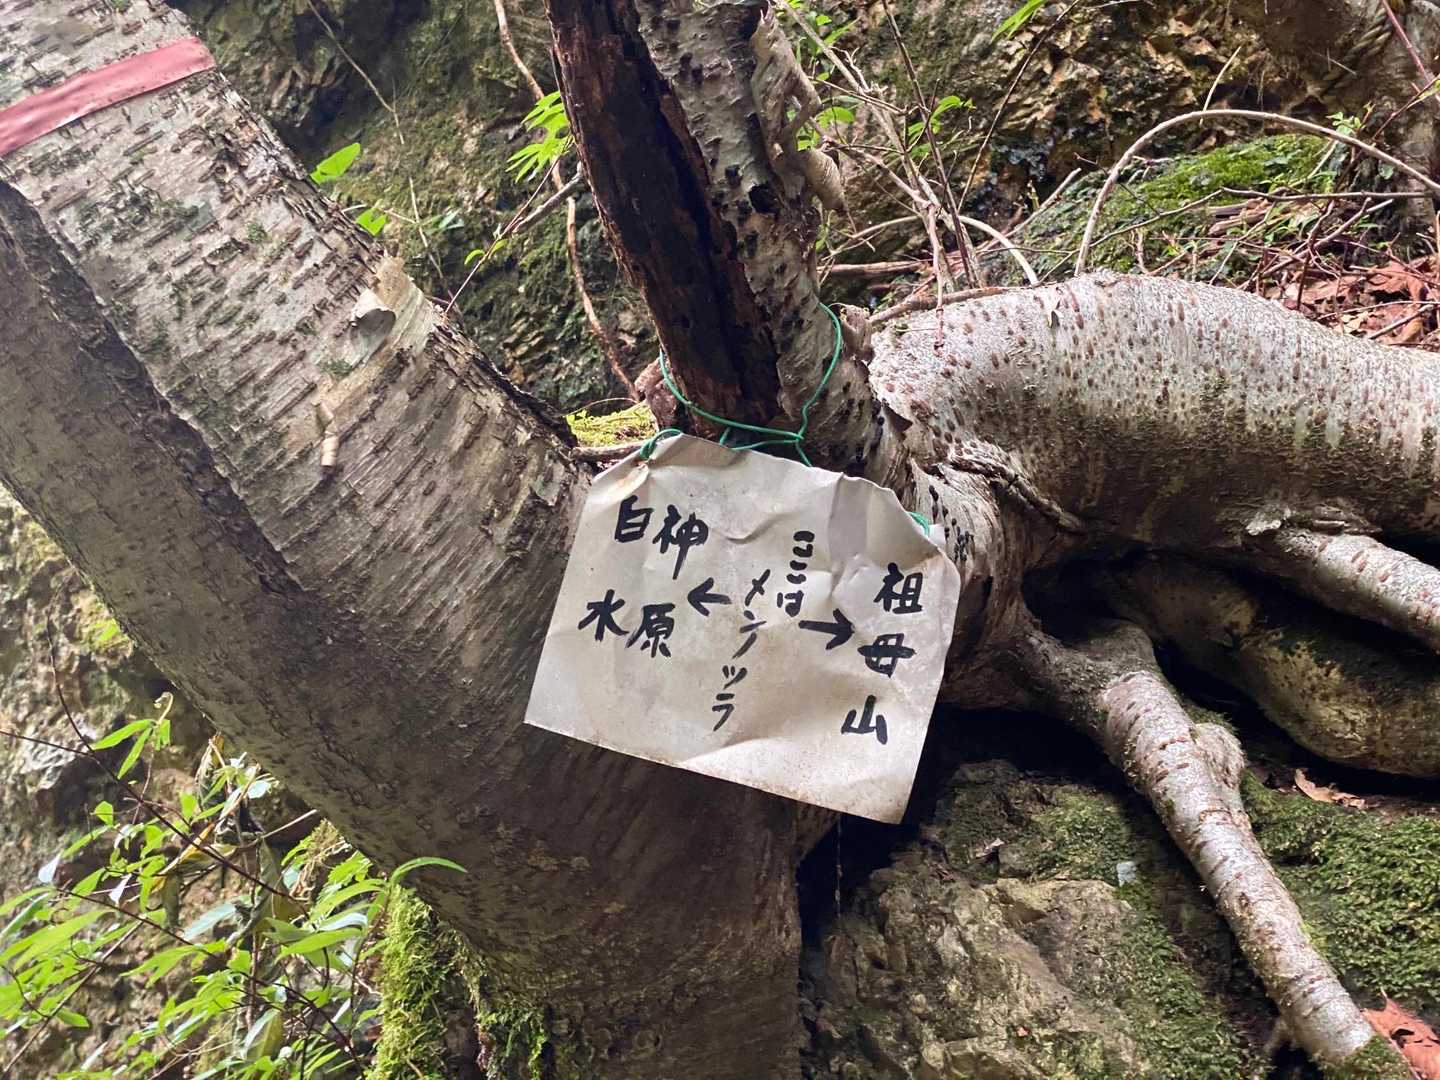 祖母山
→
ここは
メンノツラ
←
神原
白水